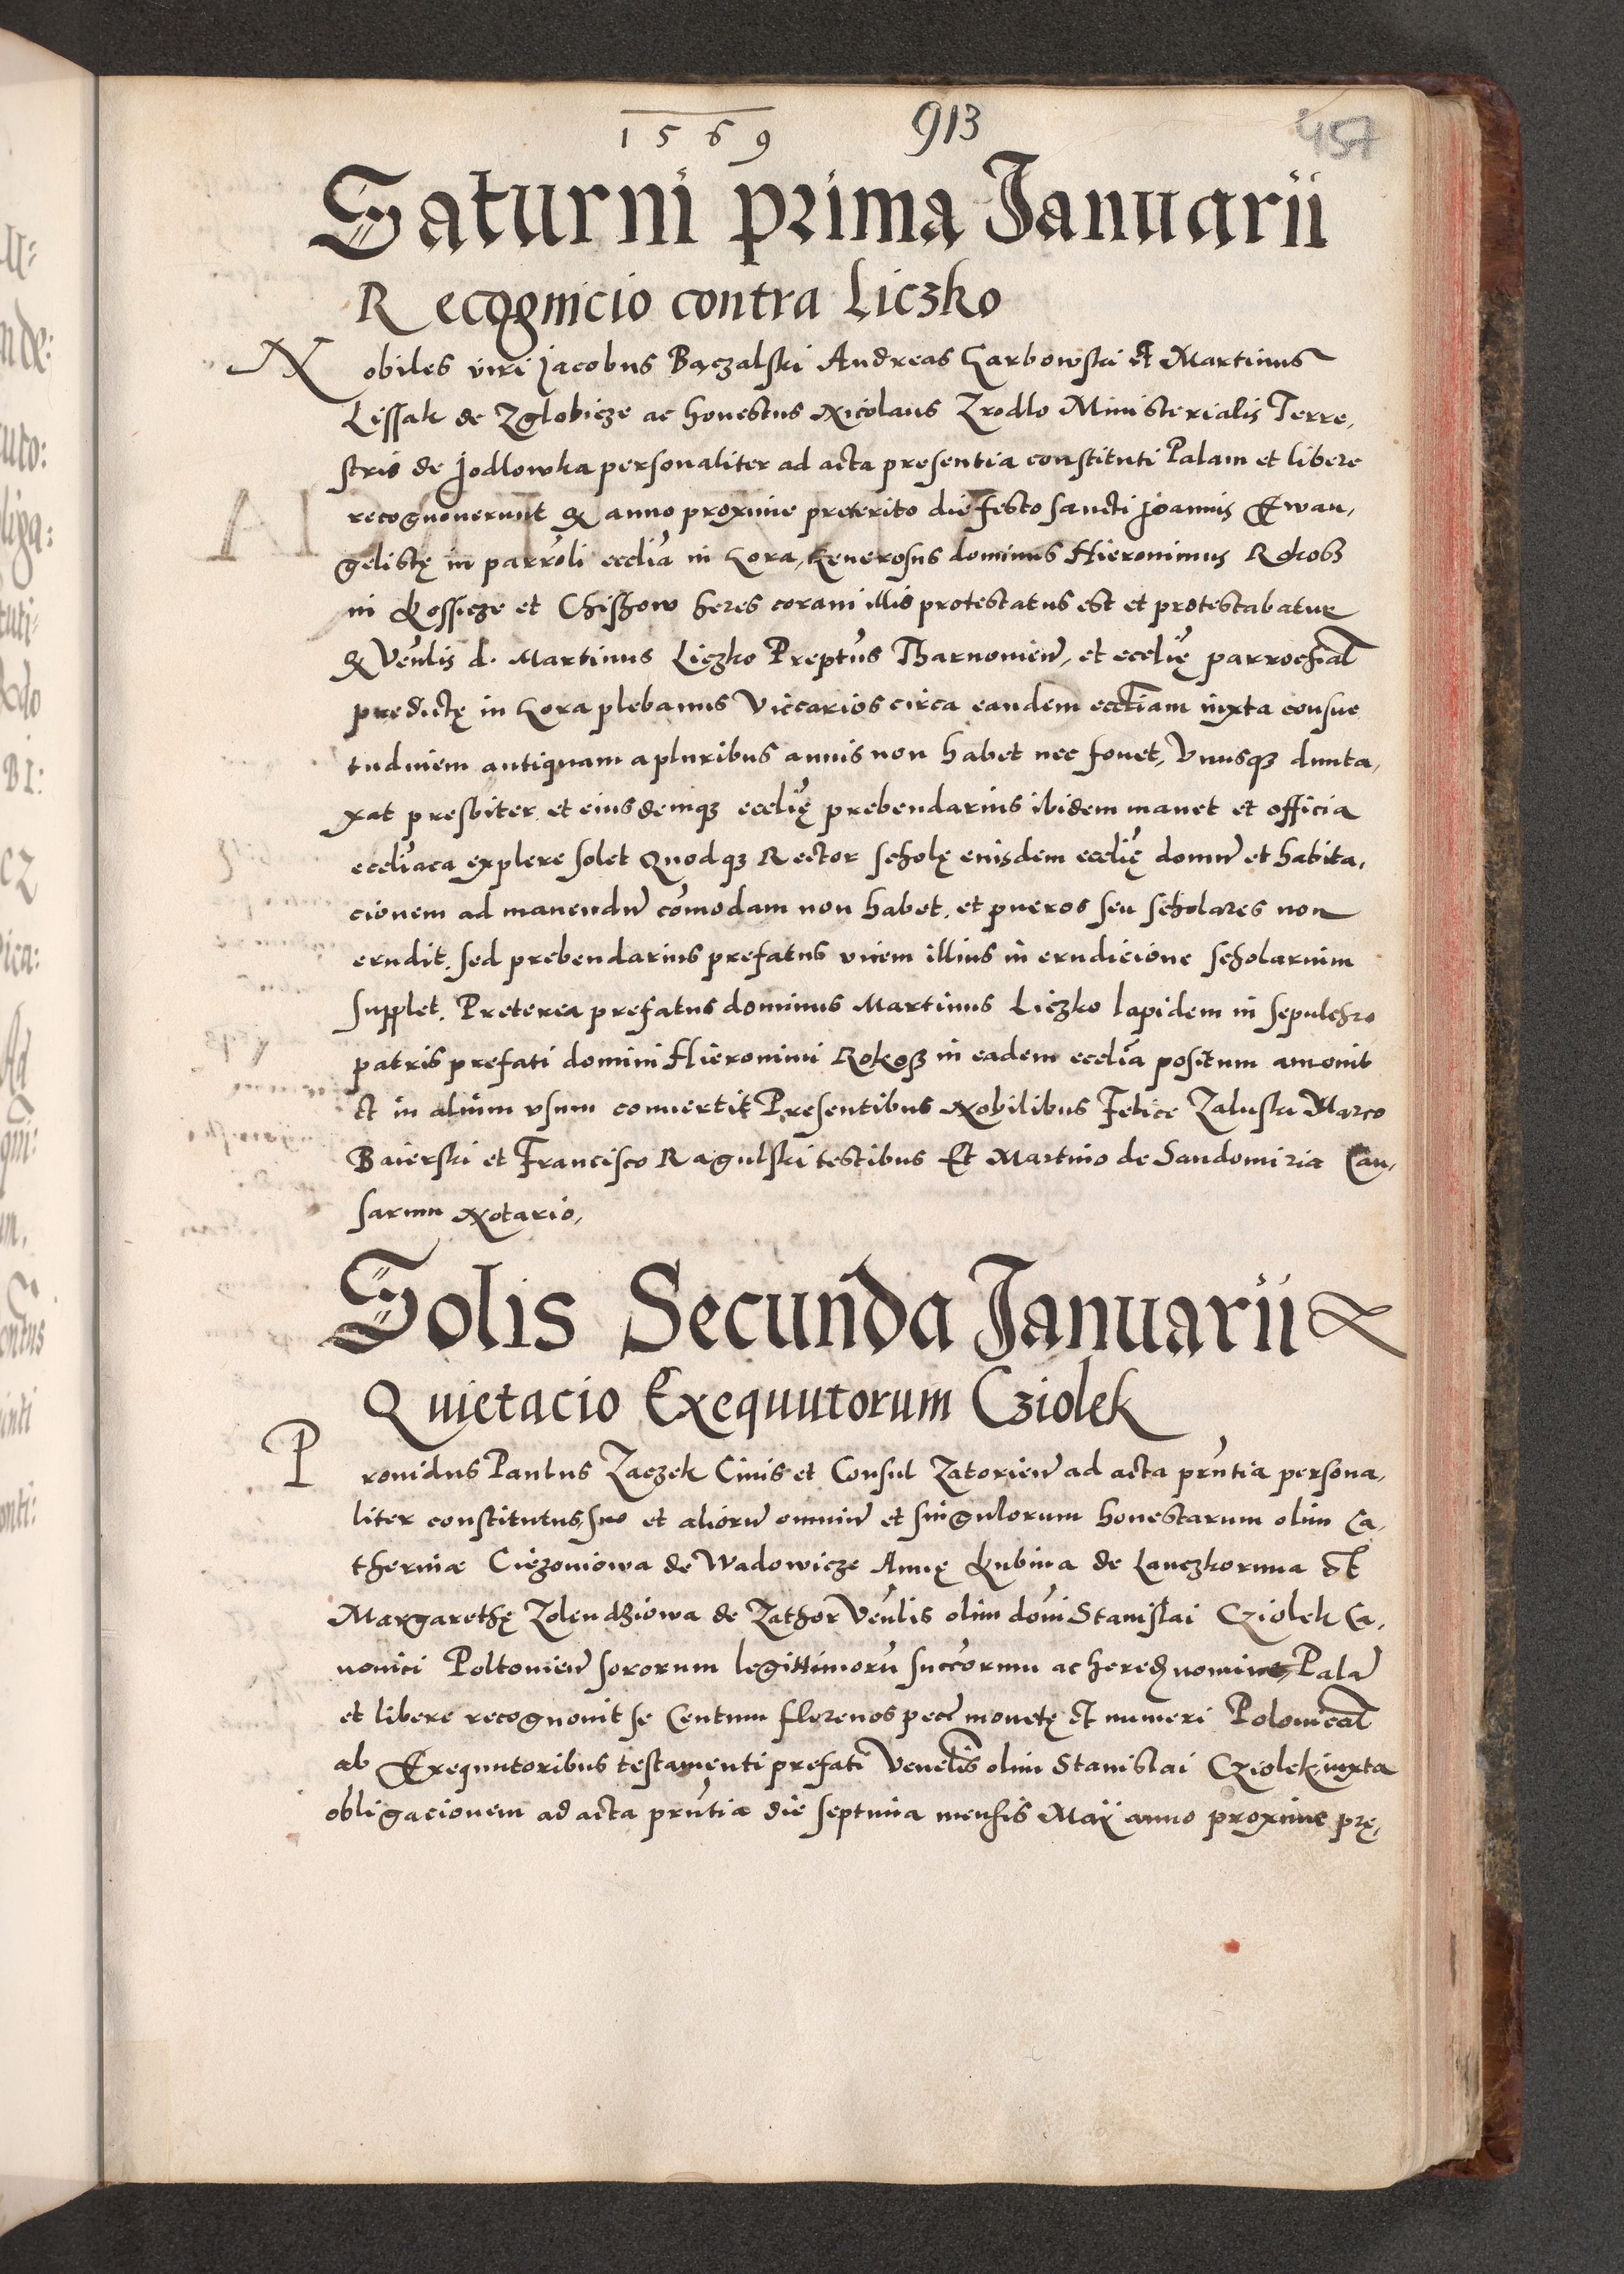 1569 913 457
Saturni prima Januarii
Recognicio contra Liczko
Nobiles viri Jacobus Bączalski Andreas Garbowski et Martinus
Lissak de Zglobicze ac honestus Nicolaus Zrodlo Ministerialis Terre,
stris de Jodlowka personaliter ad acta presentia constituti Palam et libere
recognoverunt Qꝫ anno proxime preterito die festo sancti Joannis Ewan,
gelistę in parroli ecclia in Gora, Generosus dominus Hieronimus Rokosz
in Kossicze et Chishow heres coram illis protestatus est et protestabatur
Qꝫ Venlis d. Martinus Liczko Preptus Tharnovien, et ecclię parrochial
predictę in Gora plebanus Viccarios circa eandem eccliam iuxta consue
tudinem antiquam a pluribus annis non habet nec fovet, Unusqꝫ dunta,
xat presbiter et eiusdemqꝫ ecclię prebendarius ibidem manet et officia
eccliaca explere solet Quodqꝫ Rector scholę eiusdem ecclię domum et habita,
cionem ad manendum comodam non habet, et pueros seu scholares non
erudit, sed prebendarius prefatus vicem illius in erudicione scholarium
supplet. Preterea prefatus dominus Martinus Liczko lapidem in sepulchro
patris prefati domini Hieronimi Rokosz in eadem ecclia positum amovit
et in alium usum convertit Presentibus Nobilibus Felice Zaluski Marco
Baierski et Francisco Ragulski testibus Et Martino de Sandomiria Cau,
sarum Notario,
Solis Secunda Januarii
Quietacio Exequutorum Cziolek
Providus Paulus Zaczek Civis et Consul Zatorien ad acta prntia persona,
liter constitutus, suo et aliorum omnium et singulorum honestarum olim Ca,
therinæ Ciezoniowa de Wadowicze Annę Kubina de Lanczkoruna et
Margarethę Zolendziowa de Zathor Venlis olim domi Stanislai Cziolek Ca,
nonici Poltovien sororum legittimorum succorum ac hered nomine, Palam
et libere recognovit se Centum florenos pecc monetę et numeri Polonical
ab Exequutoribus testamenti prefati Venelis olim Stanislai Cziolek iuxta
obligacionem ad acta prntia die septima mensis Maii anno proxime prę,